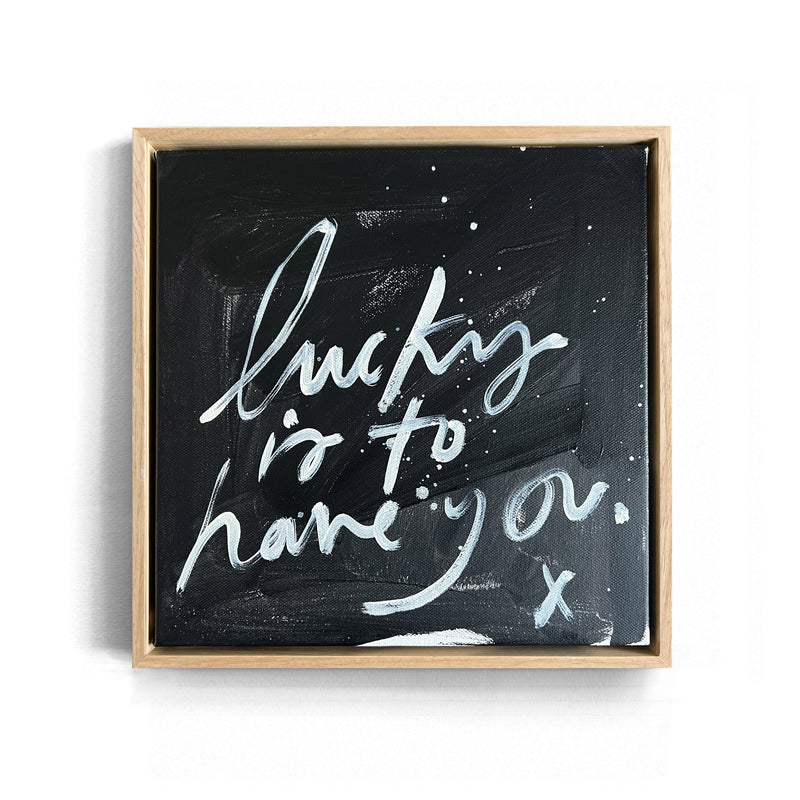 lucky
is to
have you.
x